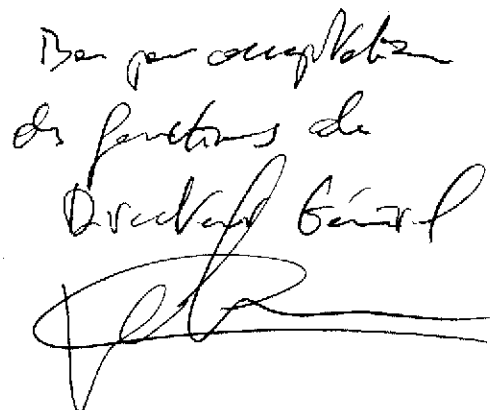 Bon pour acceptation
des fonctions de
Directeur Général